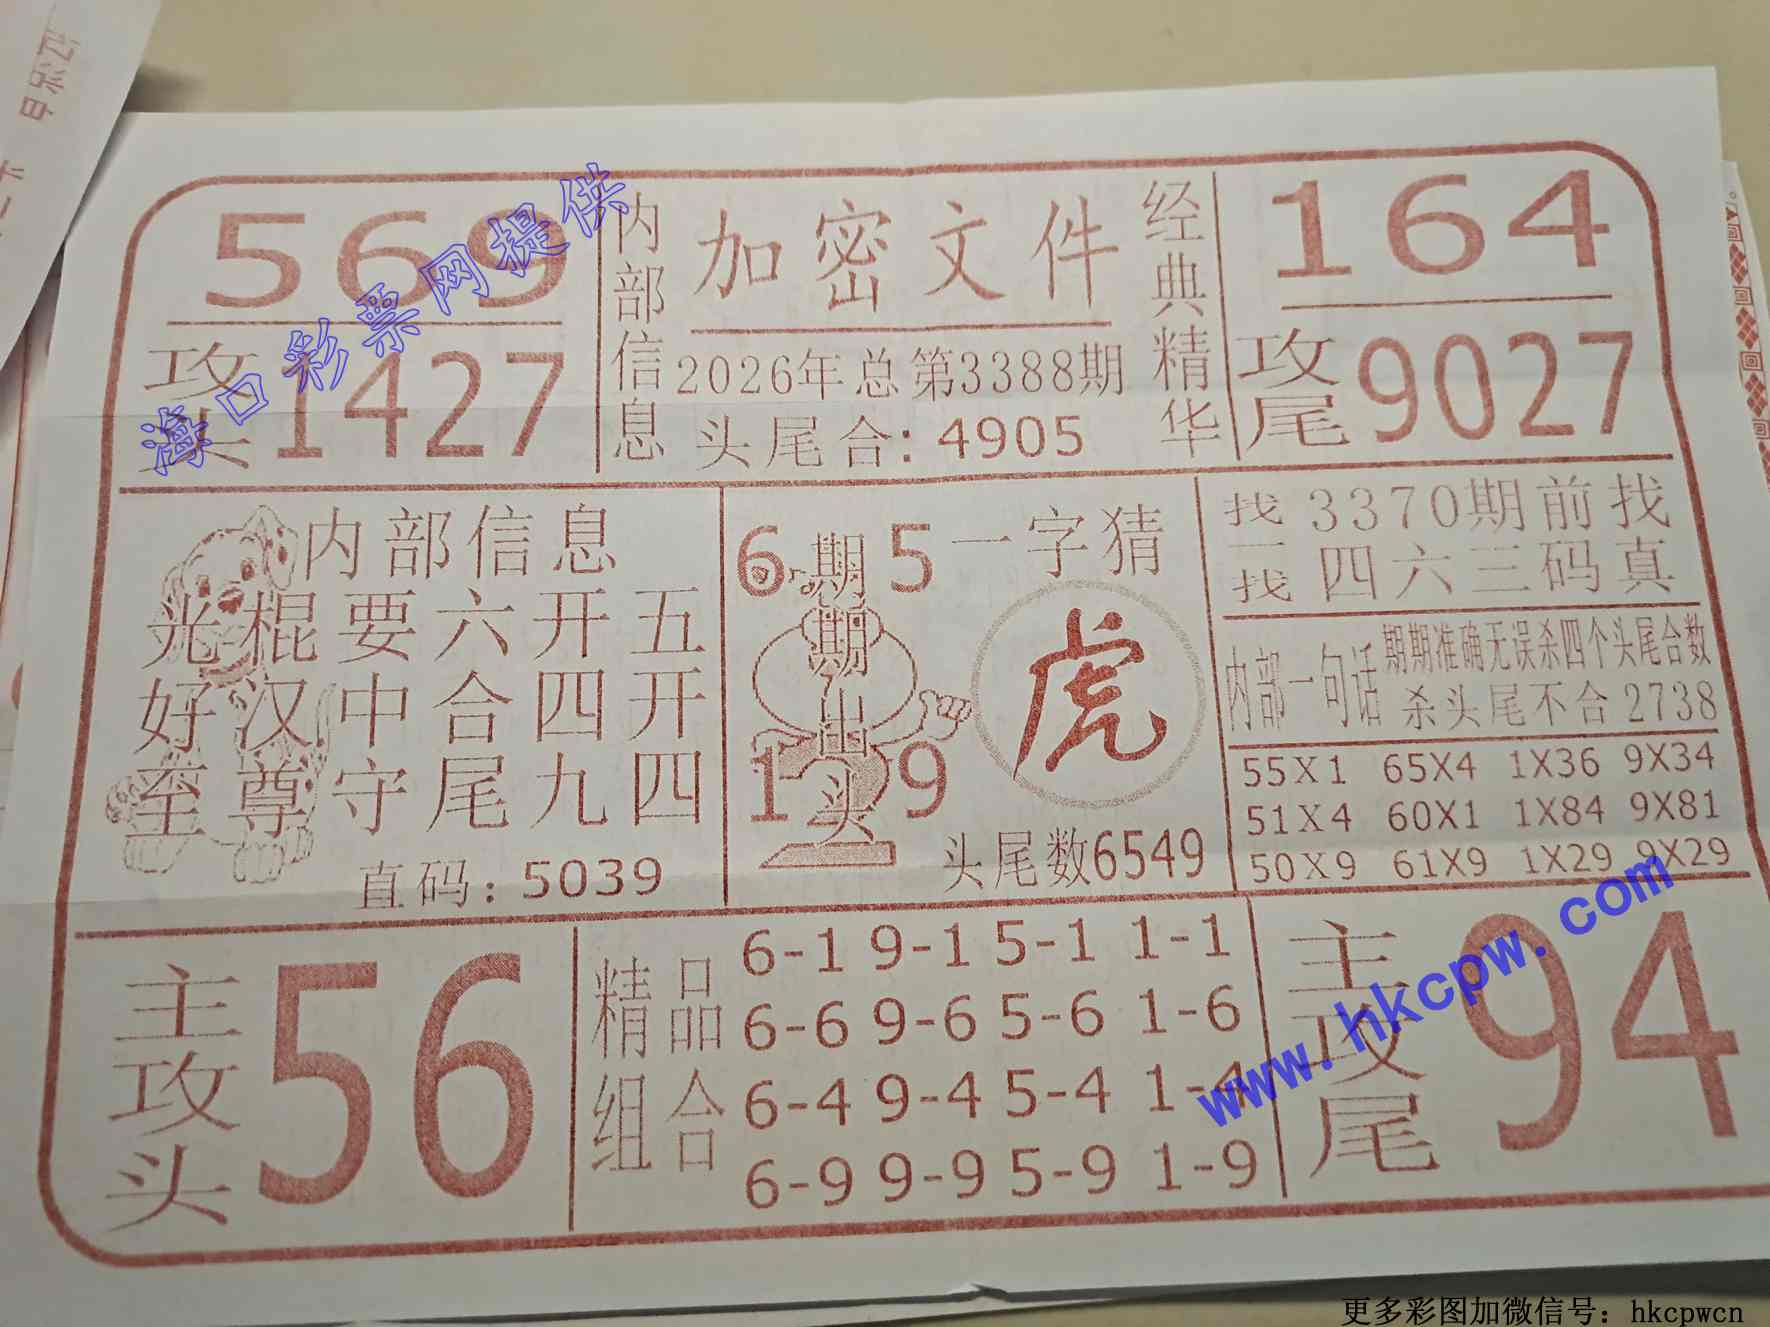 569
攻头1427
内部信息
加密文件
2026年总第3388期
头尾合:4905
经典精华
164
攻尾9027
内部信息
光棍要六开五
好汉中合四开
至尊守尾九四
直码:5039
6 5
期期出头
1 9
一字猜
虎
头尾数6549
找一找
3370期前找
四六三码真
内部一句话
期期准确无误杀四个头尾合数
杀头尾不合2738
55X1 65X4 1X36 9X34
51X4 60X1 1X84 9X81
50X9 61X9 1X29 9X29
主攻头
56
精品组合
6-1 9-1 5-1 1-1
6-6 9-6 5-6 1-6
6-4 9-4 5-4 1-4
6-9 9-9 5-9 1-9
主攻尾
94
海口彩票网提供
www.hkcpw.com
更多彩图加微信号：hkcpwcn